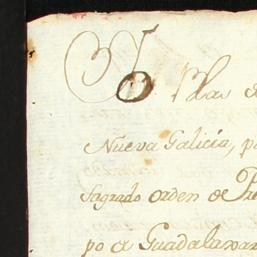 Yo Blas d
Nueva Galicia, p
Sagrado orden de Pre
po de Guadalaxar